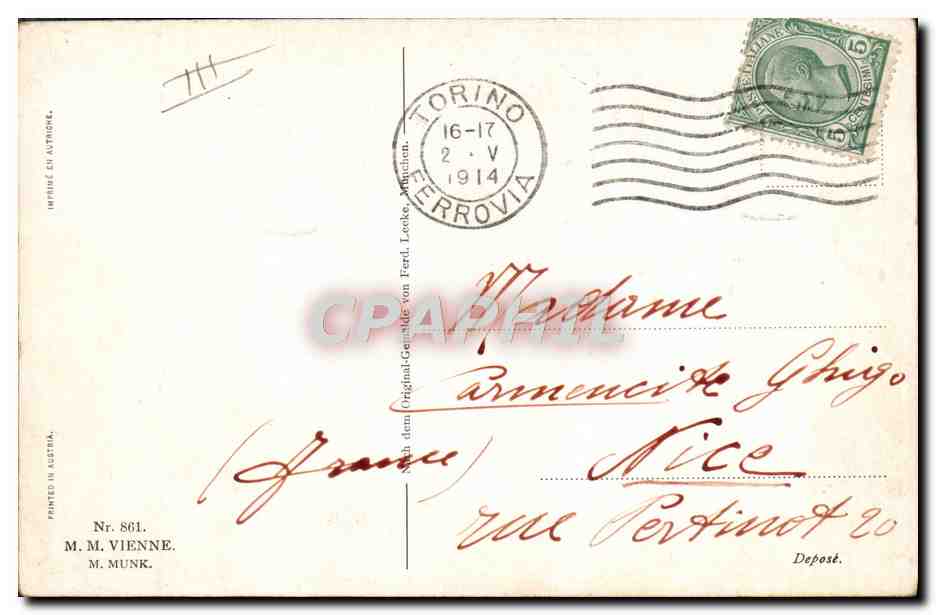 TORINO
16-17
2 · V
1914
FERROVIA
POSTE ITALIANE
CENTESIMI
5 5
IMPRIMÉ EN AUTRICHE.
PRINTED IN AUSTRIA.
Nach dem Original-Gemälde von Ferd. Leeke, München.
CPAPHIL
Madame
Carmencite Ghigo
Nice
(France)
rue Pertinat 20
Nr. 861.
M. M. VIENNE.
M. MUNK.
Deposé.